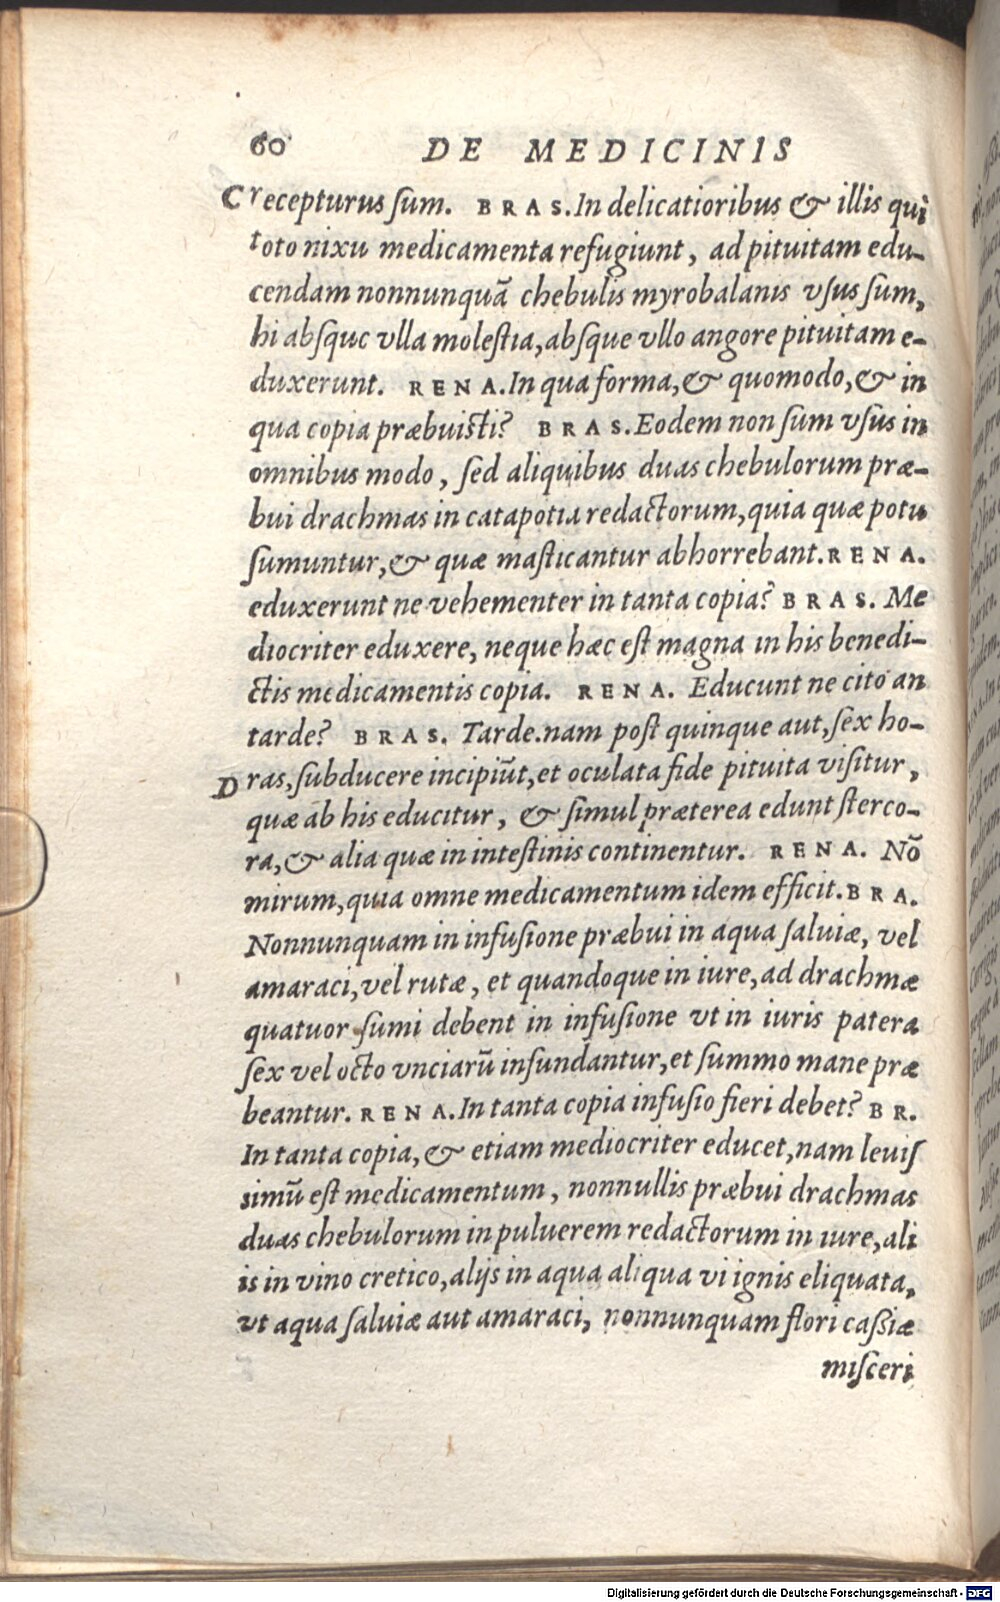 60 DE MEDICINIS
C recepturus ſum. BRAS. In delicatioribus & illis qui
toto nixu medicamenta refugiunt, ad pituitam edu-
cendam nonnunquā chebulis myrobalanis vſus ſum,
hi abſque vlla moleſtia, abſque vllo angore pituitam e-
duxerunt. RENA. In qua forma, & quomodo, & in
qua copia præbuisti? BRAS. Eodem non ſum vſus in
omnibus modo, ſed aliquibus duas chebulorum præ-
bui drachmas in catapotia redactorum, quia quæ potu
ſumuntur, & quæ maſticantur abhorrebant. RENA.
eduxerunt ne vehementer in tanta copia? BRAS. Me
diocriter eduxere, neque hæc eſt magna in his benedi-
ctis medicamentis copia. RENA. Educunt ne cito an
tarde? BRAS. Tarde. nam poſt quinque aut, ſex ho-
D ras, ſubducere incipiūt, et oculata fide pituita viſitur,
quæ ab his educitur, & ſimul præterea edunt ſterco-
ra, & alia quæ in inteſtinis continentur. RENA. Nō
mirum, quia omne medicamentum idem efficit. BRA.
Nonnunquam in infuſione præbui in aqua ſaluiæ, vel
amaraci, vel rutæ, et quandoque in iure, ad drachmæ
quatuor ſumi debent in infuſione vt in iuris patera
ſex vel octo vnciarū infundantur, et ſummo mane præ
beantur. RENA. In tanta copia infuſio fieri debet? BR.
In tanta copia, & etiam mediocriter educet, nam leuiſ
simū eſt medicamentum, nonnullis præbui drachmas
duas chebulorum in puluerem redactorum in iure, ali
is in vino cretico, alijs in aqua aliqua vi ignis eliquata,
vt aqua ſaluiæ aut amaraci, nonnunquam flori caßiæ
miſceri
Digitalisierung gefördert durch die Deutsche Forschungsgemeinschaft - DFG